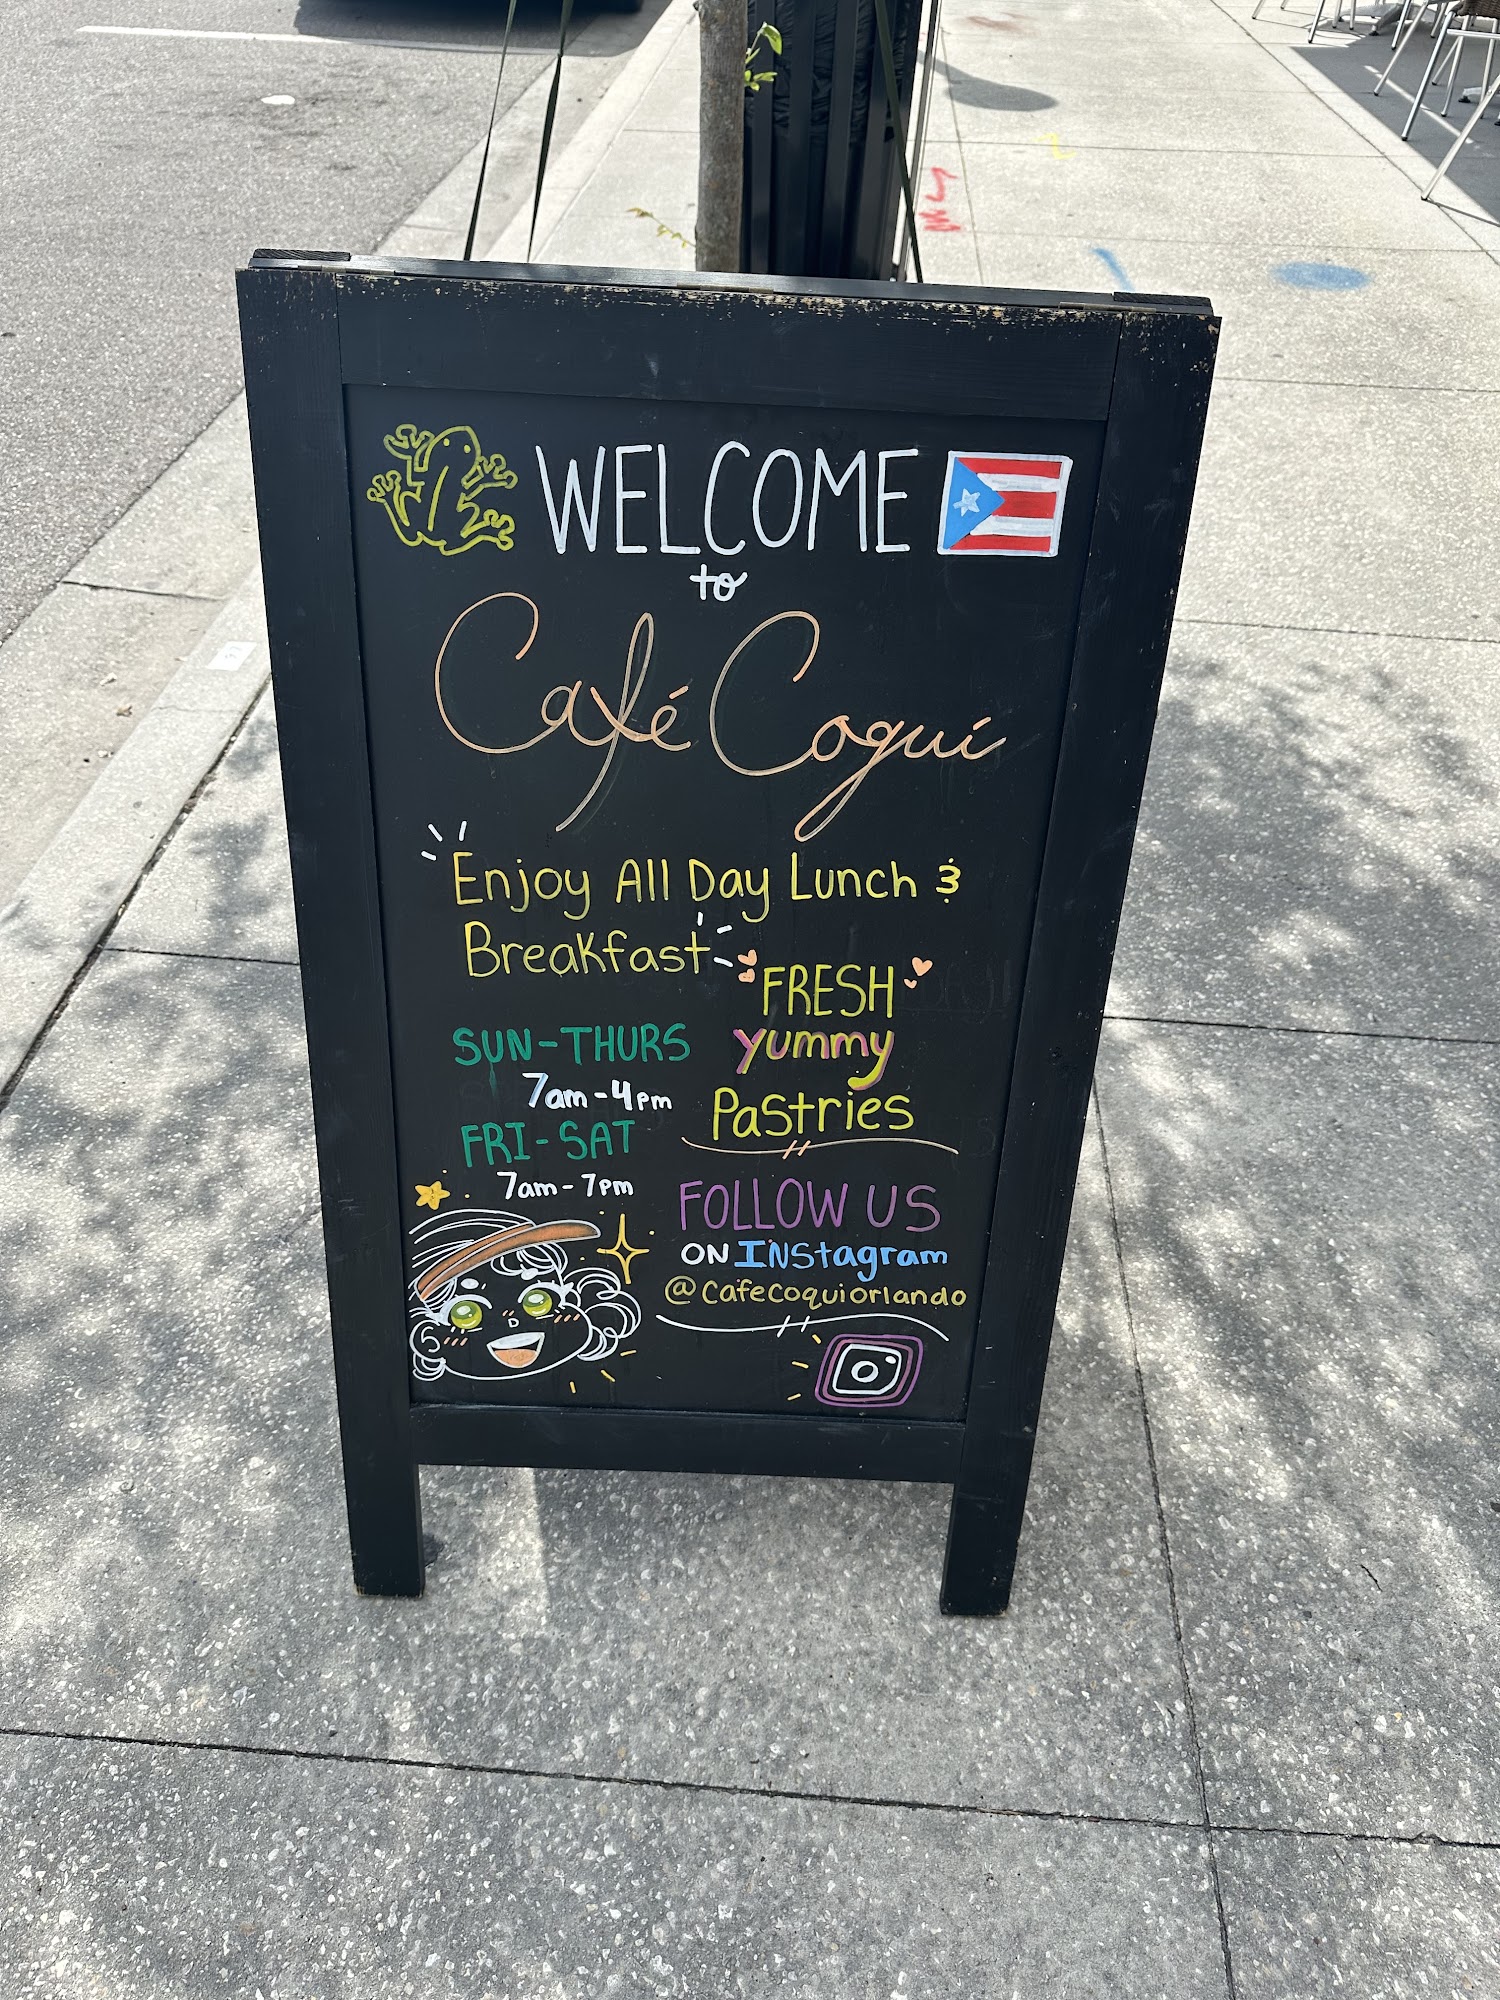 WELCOME
to
Café Coquí
Enjoy All Day Lunch &
Breakfast
FRESH
yummy
Pastries
SUN-THURS
7am-4pm
FRI-SAT
7am-7pm
FOLLOW US
ON INStagram
@cafecoquiorlando